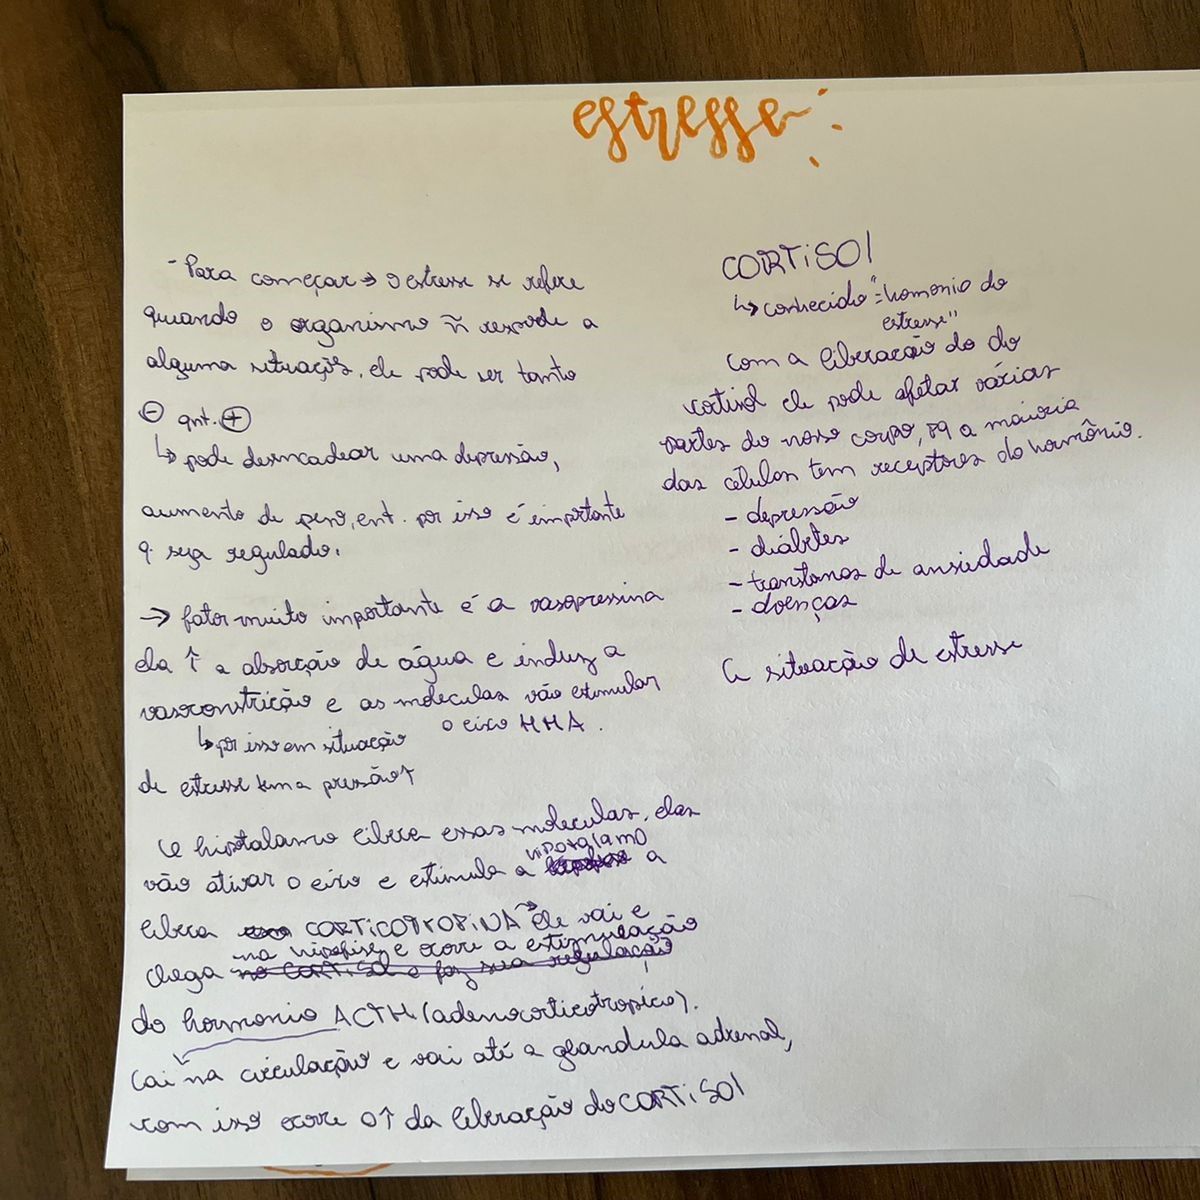 estresse:
- Para começar → o estresse se refere
quando o organismo ñ respode a
alguma situação, ele pode ser tanto
⊖ qnt. ⊕
↳ pode desencadear uma depressão,
aumento de peso, ent. por isso é importante
q. seja regulado.
→ fator muito importante é a vasopressina
ela ↑ a absorção de água e induz a
vasoconstrição e as moleculas vão estimular
o eixo HHA.
↳ por isso em situação
de estresse tem a pressão ↑
O hipotalamo libera essas moleculas, elas
vão ativar o eixo e estimula a hipotalamo a
libera CORTICOTROPINA → ele vai e
chega na hipofise e ocorre a estimulação
do hormonio ACTH (adenocorticotropico).
Cai na circulação e vai até a glandula adrenal,
com isso ocorre o ↑ da liberação do CORTiSOl
CORTiSOl
↳ conhecido = "homonio do
estresse"
com a liberação do do
cortisol ele pode afetar várias
partes do nosso corpo, já q a maioria
das células tem receptores do hormônio.
- depressão
- diábetes
- transtornos de ansiedade
- doenças
A situação de estresse